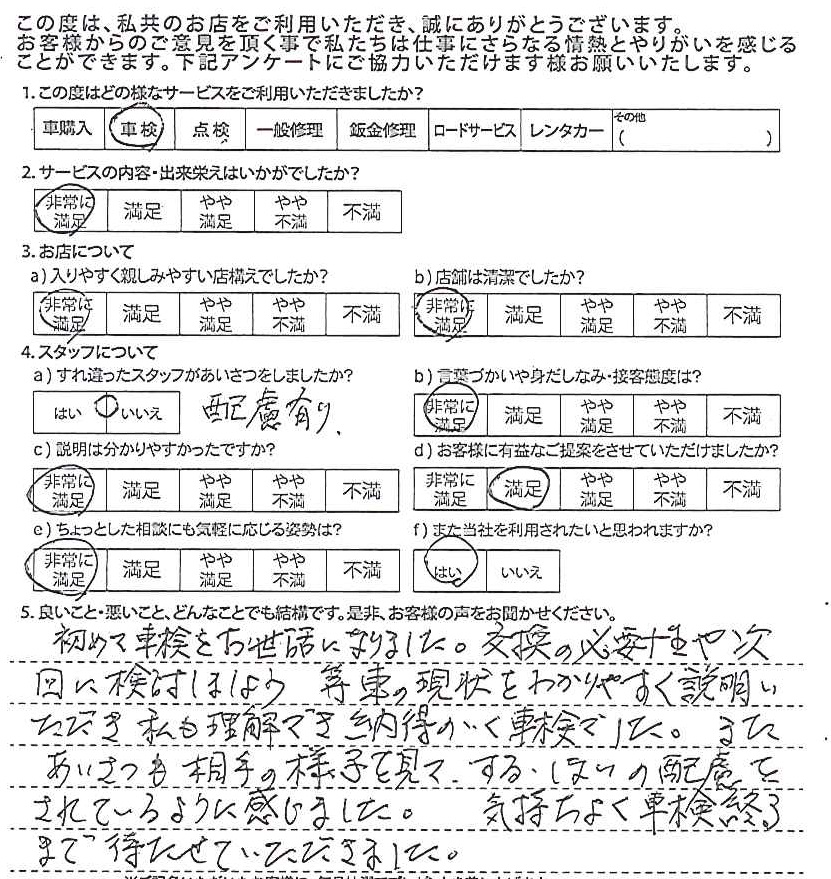 この度は、私共のお店をご利用いただき、誠にありがとうございます。
お客様からのご意見を頂く事で私たちは仕事にさらなる情熱とやりがいを感じる
ことができます。下記アンケートにご協力いただけます様お願いいたします。
1.この度はどの様なサービスをご利用いただきましたか?
車購入 車検 点検 一般修理 鈑金修理 ロードサービス レンタカー その他( )
2.サービスの内容・出来栄えはいかがでしたか?
非常に満足 満足 やや満足 やや不満 不満
3.お店について
a)入りやすく親しみやすい店構えでしたか? b)店舗は清潔でしたか?
非常に満足 満足 やや満足 やや不満 不満 非常に満足 満足 やや満足 やや不満 不満
4.スタッフについて
a)すれ違ったスタッフがあいさつをしましたか? b)言葉づかいや身だしなみ・接客態度は?
はい いいえ 配慮有り、 非常に満足 満足 やや満足 やや不満 不満
c)説明は分かりやすかったですか? d)お客様に有益なご提案をさせていただけましたか?
非常に満足 満足 やや満足 やや不満 不満 非常に満足 満足 やや満足 やや不満 不満
e)ちょっとした相談にも気軽に応じる姿勢は? f)また当社を利用されたいと思われますか?
非常に満足 満足 やや満足 やや不満 不満 はい いいえ
5.良いこと・悪いこと、どんなことでも結構です。是非、お客様の声をお聞かせください。
初めて車検をお世話になりました。交換の必要性や次
回に検討しましょう 等車の現状をわかりやすく説明い
ただき私も理解でき納得のいく車検でした。また
あいさつも相手の様子を見て、する、しないの配慮を
されているように感じました。 気持ちよく車検終了
まで待たせていただきました。